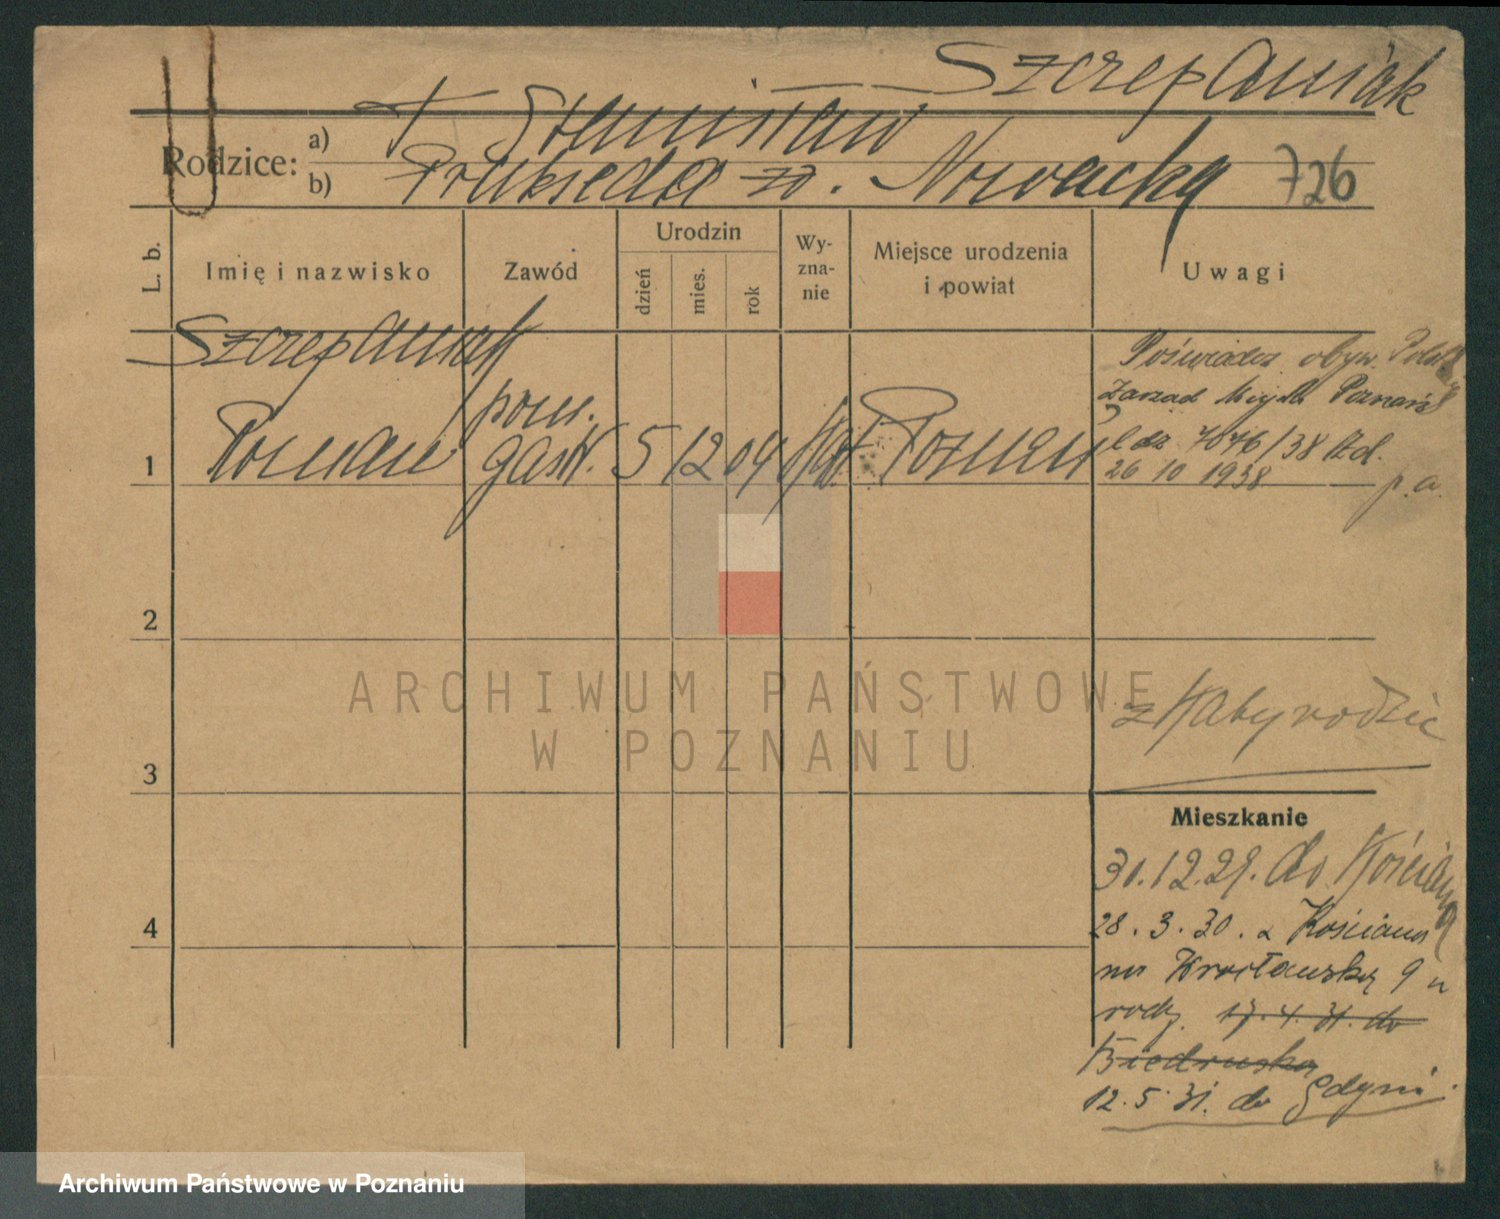 Szczepaniak
Rodzice:
a) + Stanisław
b) Prakseda zd. Nowacka 726
L. b.
Imię i nazwisko
Zawód
Urodzin
dzień
mies.
rok
Wy-
zna-
nie
Miejsce urodzenia
i powiat
Uwagi
Szczepaniak
1 Roman
pom.
gastr.
5 12 04 kat. Poznań
Poświadcz. obyw. Polsk
Zarząd Miejski Poznań
7876/38
26 10 1938 p. a.
2
ARCHIWUM PAŃSTWOWE
W POZNANIU
z
3
Mieszkanie
30.12.29. do Kościana
4
28. 3. 30. z Kościana
na Wrocławską 9 u
rodz. 17. 4. 31. do
Biedruska
12. 5. 31. do Gdyni.
Archiwum Państwowe w Poznaniu